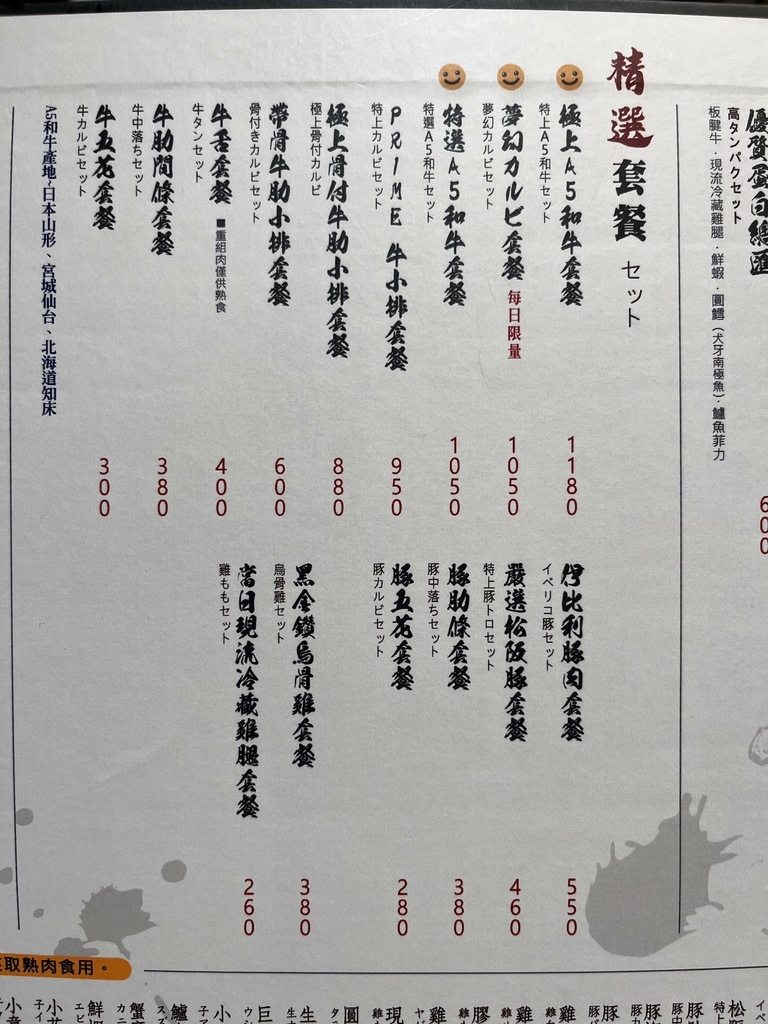 優質蛋白總匯
高タンパクセット
板腱牛．現流冷藏雞腿．鮮蝦．圓鱈（犬牙南極魚）．鱸魚菲力
600
精選套餐 セット
極上A5和牛套餐 1180
特上A5和牛セット
夢幻カルビ套餐 每日限量 1050
夢幻カルビセット
特選A5和牛套餐 1050
特選A5和牛セット
PRIME 牛小排套餐 950
特上カルビセット
極上骨付牛肋小排套餐 880
極上骨付カルビ
帶骨牛肋小排套餐 600
骨付きカルビセット
牛舌套餐 ■重組肉僅供熟食 400
牛タンセット
牛肋間條套餐 380
牛中落ちセット
牛五花套餐 300
牛カルビセット
A5和牛產地~日本山形、宮城仙台、北海道知床
伊比利豚肉套餐 550
イベリコ豚セット
嚴選松阪豚套餐 460
特上豚トロセット
豚肋條套餐 380
豚中落ちセット
豚五花套餐 280
豚カルビセット
黑金鑽烏骨雞套餐 380
烏骨雞セット
當日現流冷藏雞腿套餐 260
雞ももセット
取熟肉食用。